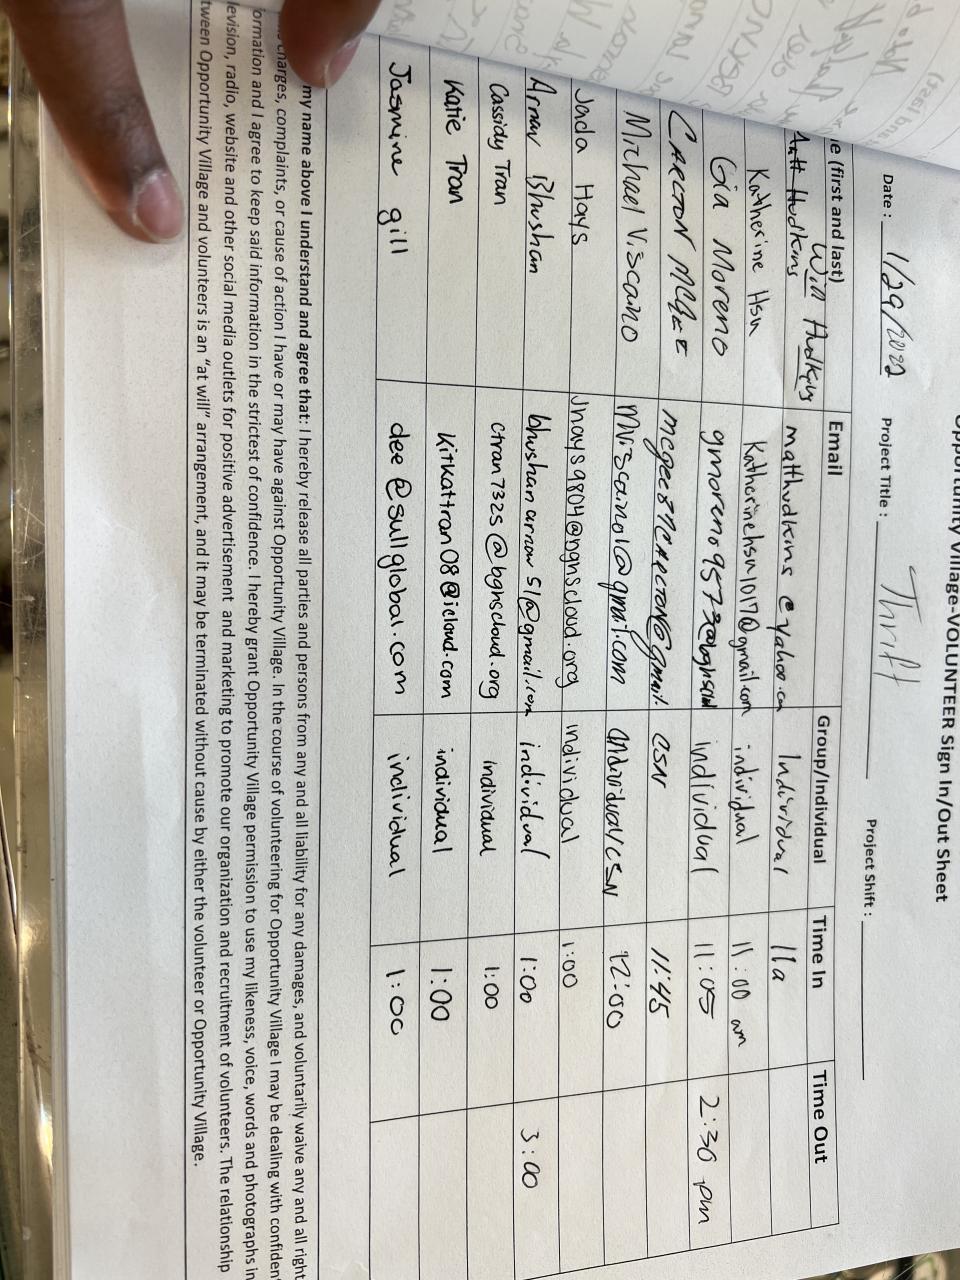 Opportunity Village-VOLUNTEER Sign In/Out Sheet
Date : 1/29/2022 Project Title : Thrift Project Shift :
e (first and last) Email Group/Individual Time In Time Out
Will Hudkins matthudkins@yahoo.com Individual 11a
Katherine Hsu Katherinehsu1017@gmail.com individual 11:00 am
Gia Moreno individual 11:05 2:30 pm
CARLTON MCGEE CSN 11:45
Michael Viscaino Mviscaino1@gmail.com individual/CSN 12:00
Jada Hays Jhays9804@nghscloud.org individual 1:00
Arnav Bhushan bhushanarnav51@gmail.com individual 1:00 3:00
Cassidy Tran ctran7325@bghscloud.org individual 1:00
Katie Tran Kitkattran08@icloud.com individual 1:00
Jasmine gill dee@sullglobal.com individual 1:00
my name above I understand and agree that: I hereby release all parties and persons from any and all liability for any damages, and voluntarily waive any and all right
charges, complaints, or cause of action I have or may have against Opportunity Village. In the course of volunteering for Opportunity Village I may be dealing with confiden
formation and I agree to keep said information in the strictest of confidence. I hereby grant Opportunity Village permission to use my likeness, voice, words and photographs in
levision, radio, website and other social media outlets for positive advertisement and marketing to promote our organization and recruitment of volunteers. The relationship
tween Opportunity Village and volunteers is an "at will" arrangement, and it may be terminated without cause by either the volunteer or Opportunity Village.